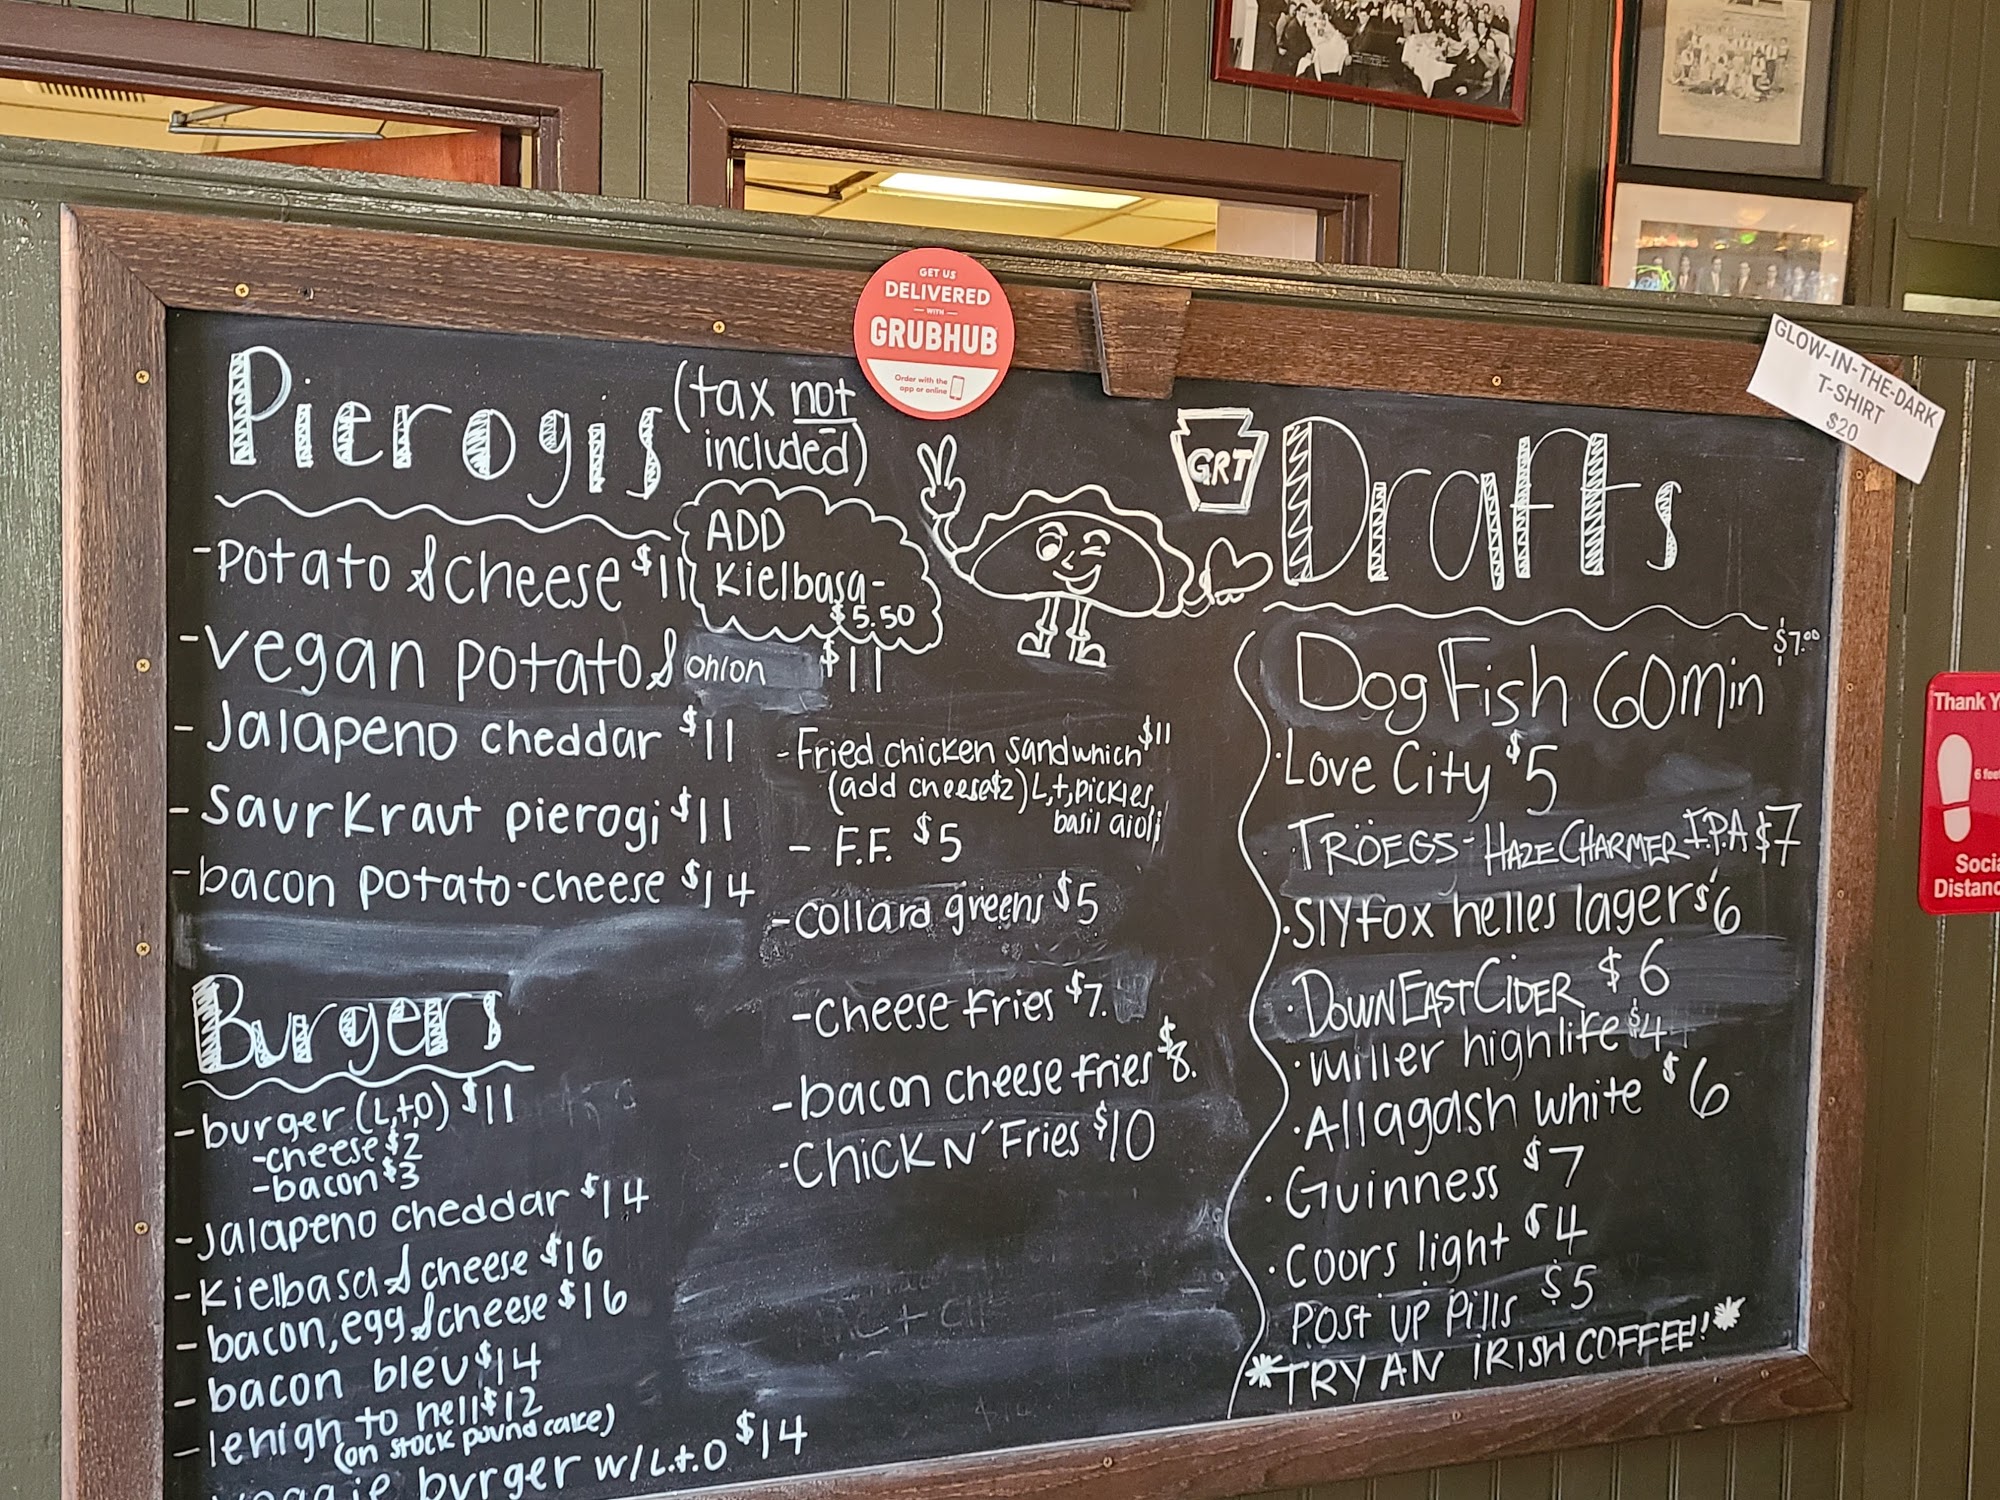 GET US
DELIVERED
WITH
GRUBHUB
Order with the
app or online
GLOW-IN-THE-DARK
T-SHIRT
$20
Pierogis
(tax not
included)
-Potato & cheese $11
ADD
Kielbasa-
$5.50
-vegan potato & onion $11
-Jalapeno cheddar $11
-SaurKraut pierogi $11
-bacon potato-cheese $14
Burgers
-burger (L,t,O) $11
-cheese $2
-bacon $3
-Jalapeno cheddar $14
-Kielbasa & cheese $16
-bacon, egg & cheese $16
-bacon bleu $14
-lehigh to hell $12
(on stock pound cake)
veggie burger w/L.t.O $14
-Fried chicken sandwhich $11
(add cheese $2) L,t,pickles,
basil aioli
- F.F. $5
-collard greens $5
-cheese fries $7.
-bacon cheese fries $8.
-Chick N' Fries $10
GRT
Drafts
DogFish 60min $7.00
·Love City $5
·TRÖEGS-HAZE CHARMER I.P.A $7
·Slyfox helles lager $6
·DOWNEAST CIDER $6
·Miller highlife $4
·Allagash white $6
·Guinness $7
·Coors light $4
Post up Pills $5
*TRY AN IRISH COFFEE!!*
Thank
6 feet